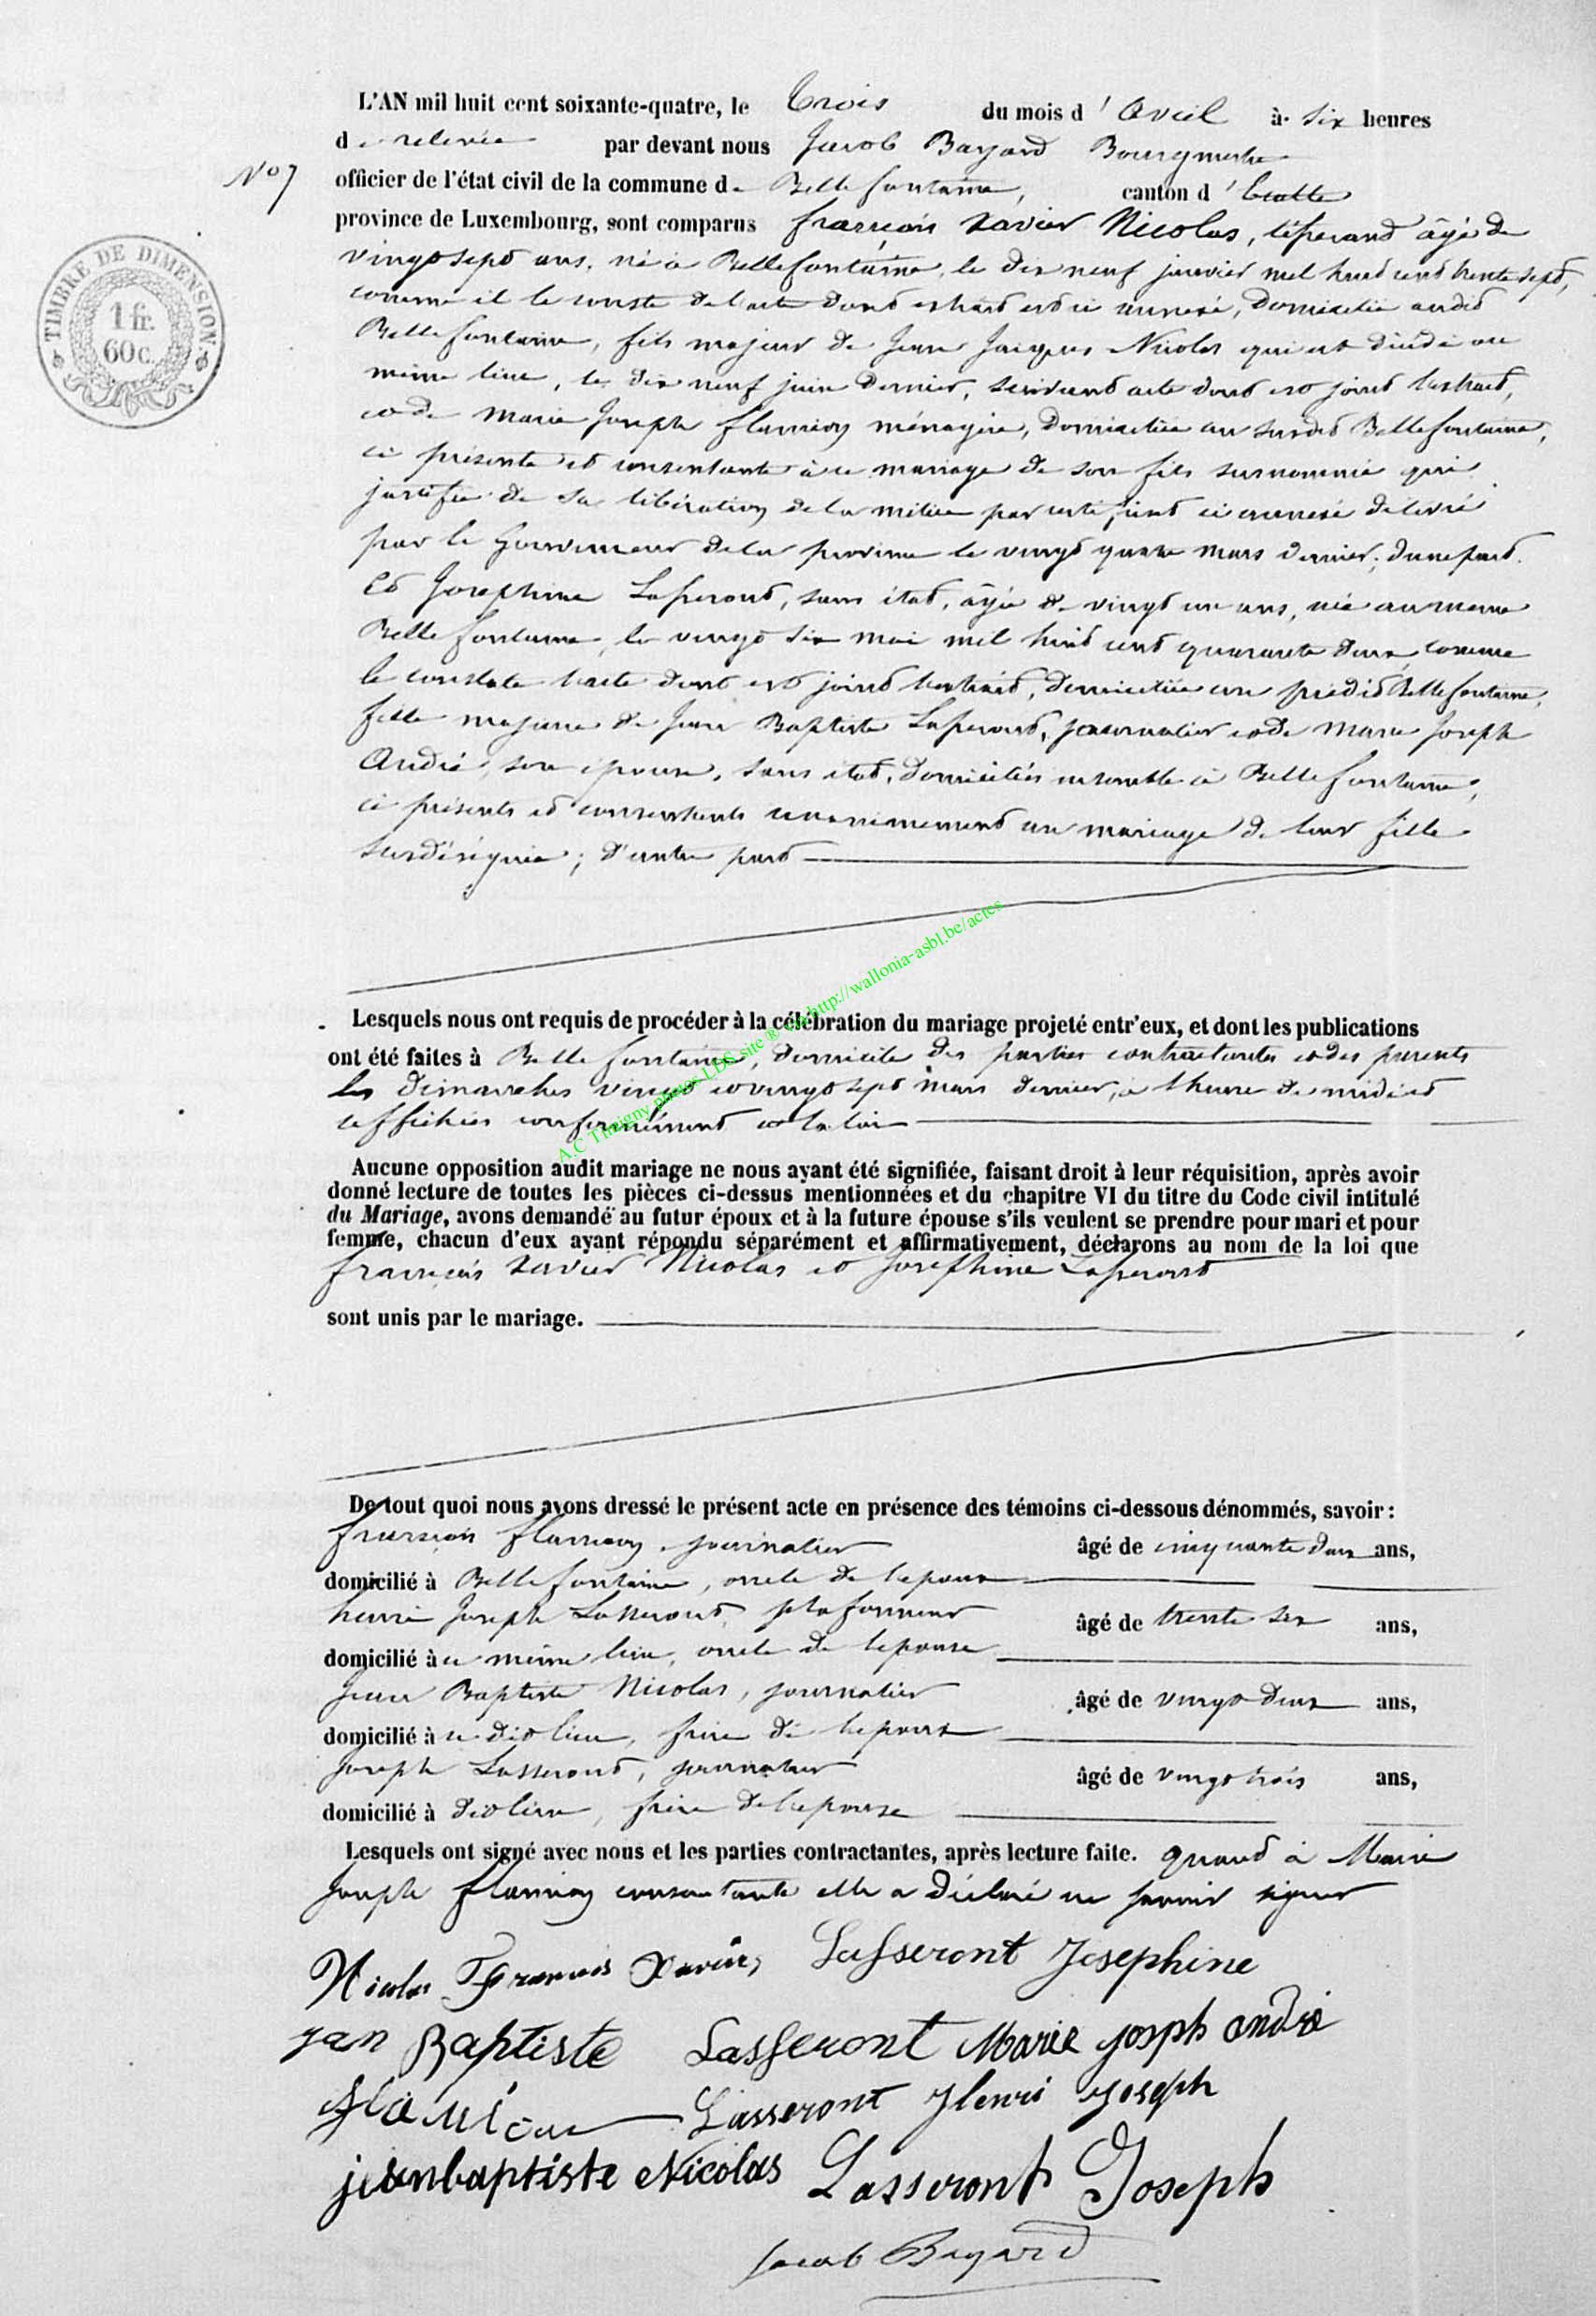 L'AN mil huit cent soixante-quatre, le trois du mois d'Avril à six heures
de relevée par devant nous Jacob Bayard Bourgmestre
N° 7 officier de l'état civil de la commune de Bellefontaine, canton d'Etalle
province de Luxembourg, sont comparus françois Xavier Nicolas, âgé de
vingt sept ans, né à Bellefontaine, le dix neuf janvier mil huit cent trente sept,
comme il le conste de l'acte dont extrait est ci annexé, domicilié audit
Bellefontaine, fils majeur de Jean Jacques Nicolas qui est décédé au
même lieu, le dix neuf juin dernier, suivant acte dont est joint l'extrait,
et de Marie Joseph flamion ménagère, domiciliée au susdit Bellefontaine,
ci présente et consentante à ce mariage de son fils surnommé qui
justifie de sa libération de la milice par certificat ci annexé délivré
par le Gouverneur de la province le vingt quatre mars dernier; d'une part.
Et Josephine Lasseront, sans état, âgée de vingt un ans, née au même
Bellefontaine, le vingt six mai mil huit cent quarante deux, comme
le constate l'acte dont est joint l'extrait, domiciliée au prédit Bellefontaine,
fille majeure de Jean Baptiste Lasseront, journalier et de Marie Joseph
André, son épouse, sans état, domiciliés ensemble à Bellefontaine,
ci présents et consentants unanimement au mariage de leur fille
susdésignée; d'autre part
TIMBRE DE DIMENSION
1 fr.
60 c.
Lesquels nous ont requis de procéder à la célébration du mariage projeté entr'eux, et dont les publications
ont été faites à Bellefontaine, domicile des parties contractantes et des parents
les dimanches vingt et vingt sept mars dernier, à l'heure de midi et
affichées conformément à la loi
A.C Tintigny photos LDS site ® via http://wallonia-asbl.be/actes
Aucune opposition audit mariage ne nous ayant été signifiée, faisant droit à leur réquisition, après avoir
donné lecture de toutes les pièces ci-dessus mentionnées et du chapitre VI du titre du Code civil intitulé
du Mariage, avons demandé au futur époux et à la future épouse s'ils veulent se prendre pour mari et pour
femme, chacun d'eux ayant répondu séparément et affirmativement, déclarons au nom de la loi que
françois Xavier Nicolas et Josephine Lasseront
sont unis par le mariage.
De tout quoi nous avons dressé le présent acte en présence des témoins ci-dessous dénommés, savoir :
françois flamion, journalier âgé de cinquante deux ans,
domicilié à Bellefontaine, oncle de l'époux
henri Joseph Lasseront, plafonneur âgé de trente six ans,
domicilié à ce même lieu, oncle de l'épouse
Jean Baptiste Nicolas, journalier âgé de vingt deux ans,
domicilié à ce dit lieu, frère de l'époux
Joseph Lasseront, journalier âgé de vingt trois ans,
domicilié à dit lieu, frère de l'épouse
Lesquels ont signé avec nous et les parties contractantes, après lecture faite. quand à Marie
Joseph flamion consentante elle a déclaré ne savoir signer
Nicolas François Xavier, Lasseront Josephine
jan Baptiste Lasseront Marie josph andré
flamion Lasseront Henri Joseph
jeanbaptiste Nicolas Lasseront Joseph
Jacob Bayard